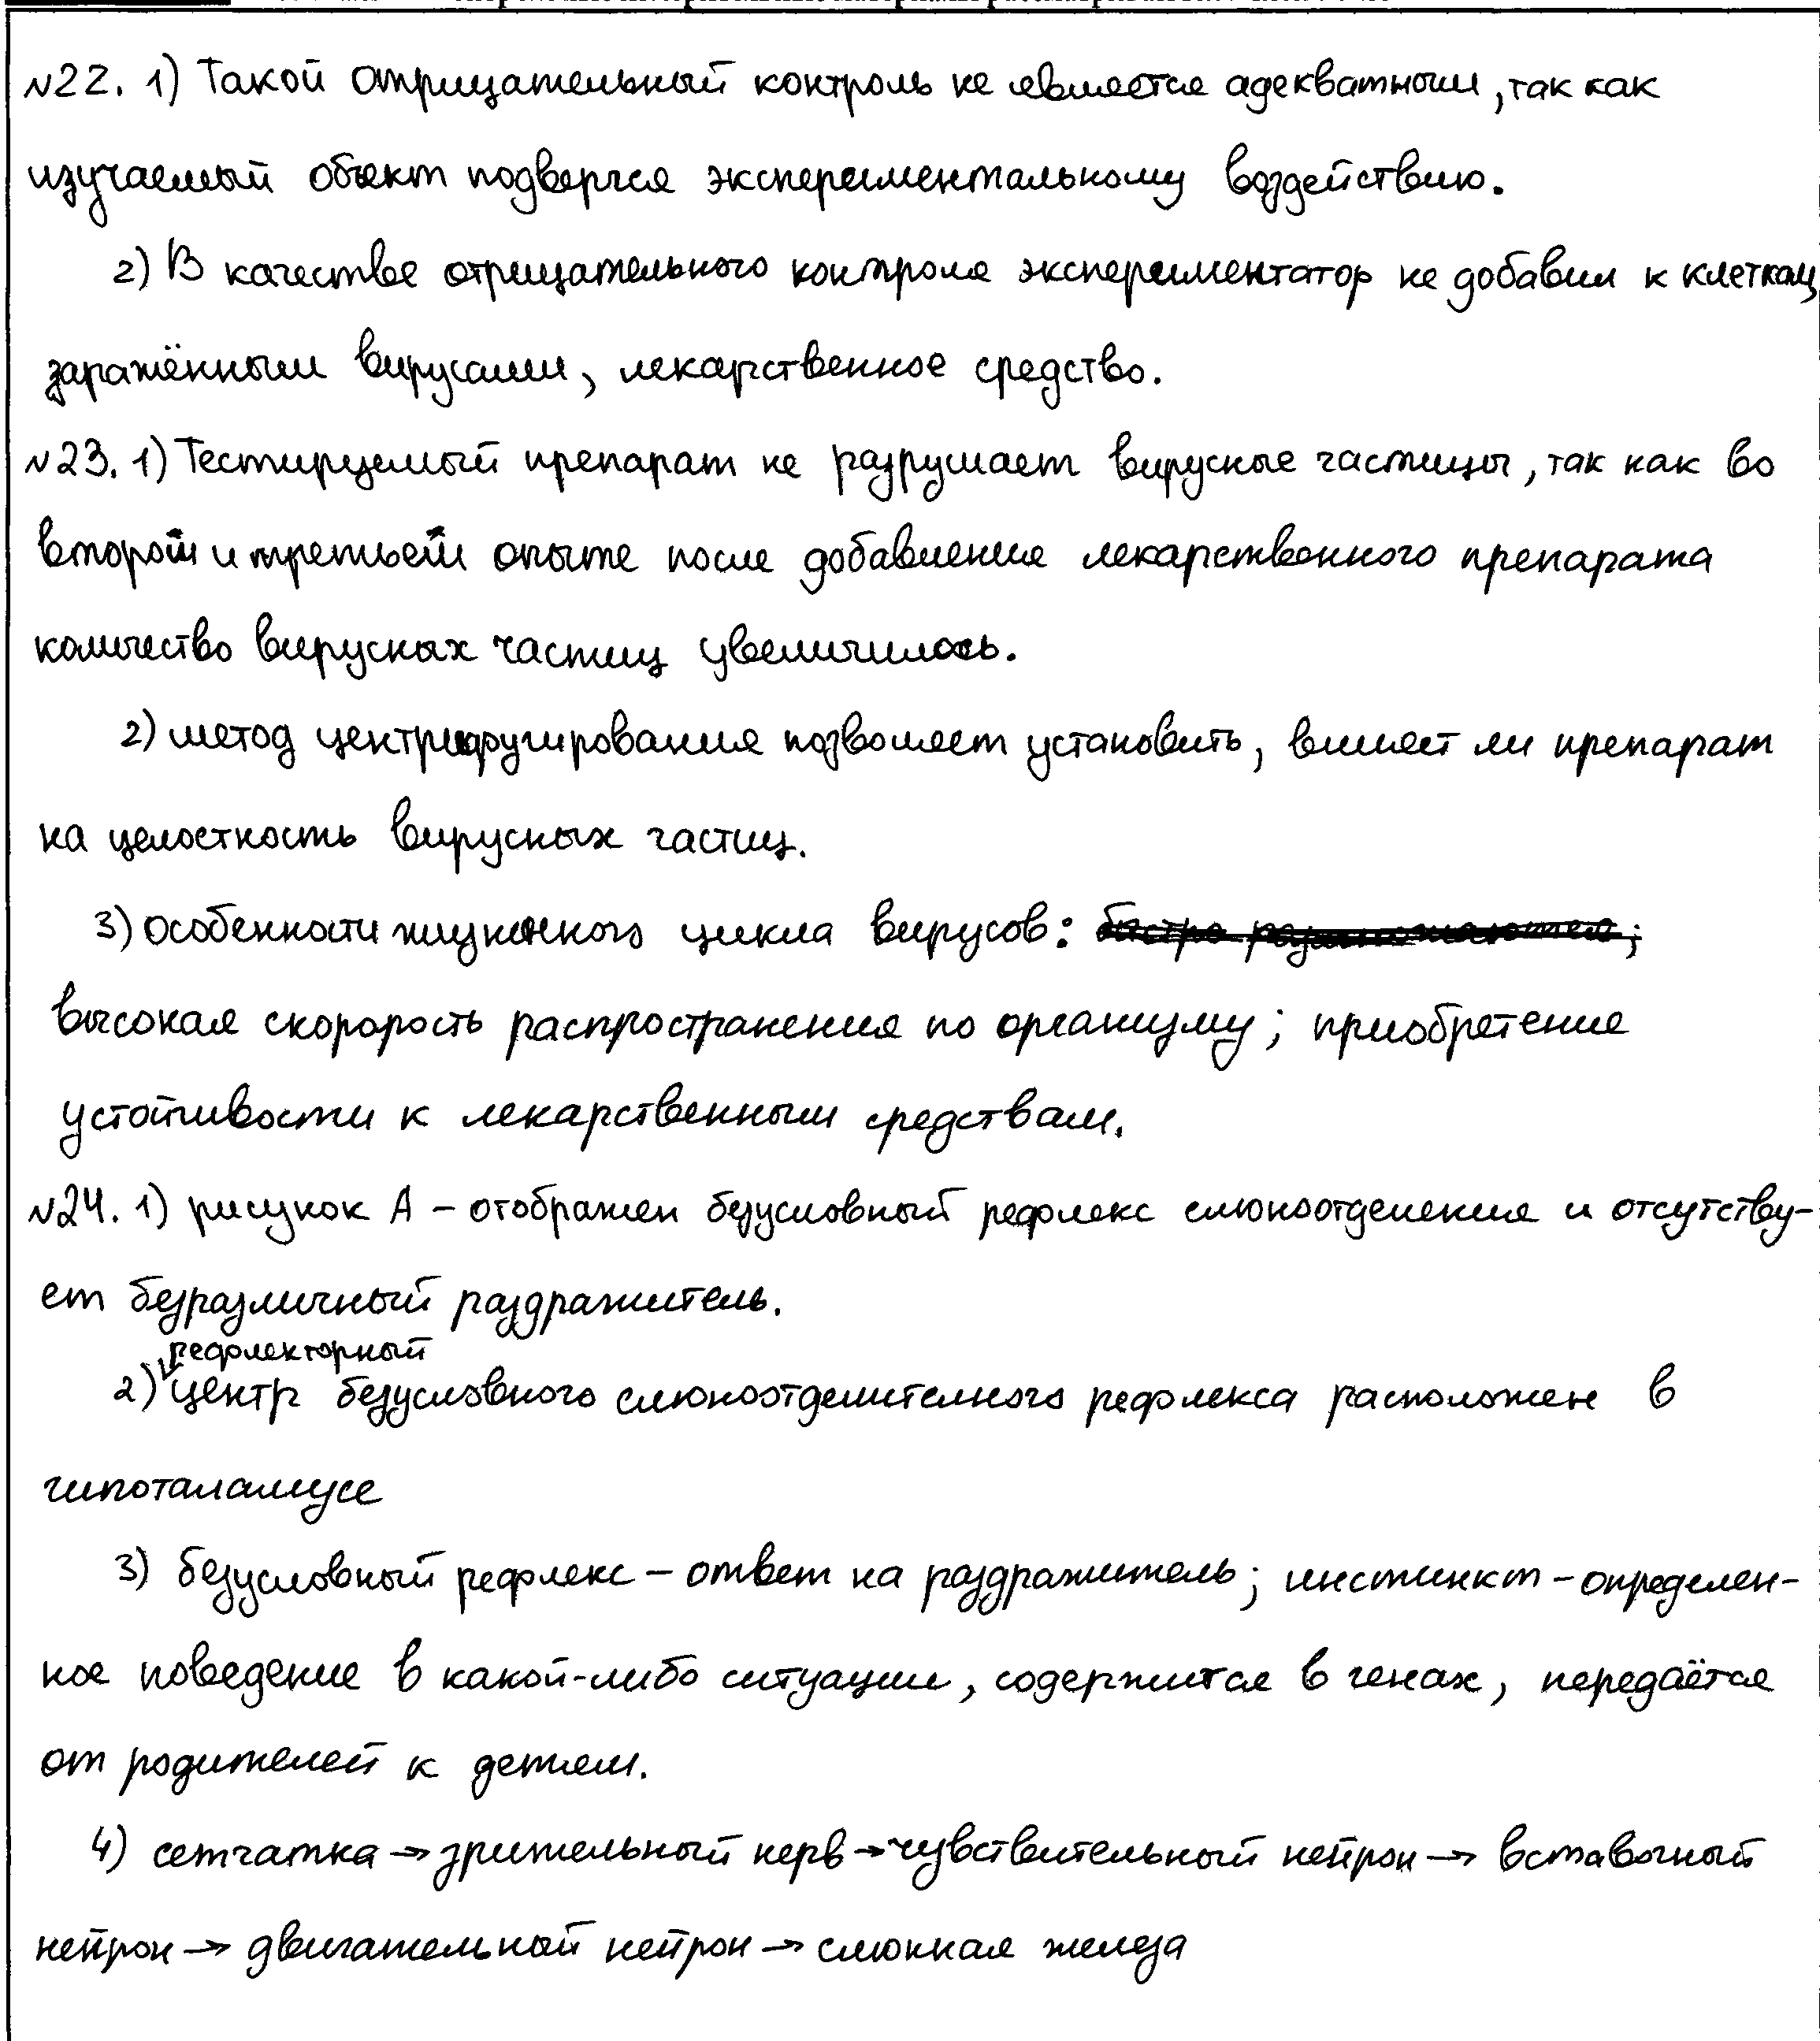 №22. 1) Такой отрицательный контроль не является адекватным, так как
изучаемый объект подвергся экспериментальному воздействию.
2) В качестве отрицательного контроля экспериментатор не добавил к клеткам,
заражённым вирусами, лекарственное средство.
№23. 1) Тестируемый препарат не разрушает вирусные частицы, так как во
второй и третьей опыте после добавления лекарственного препарата
количество вирусных частиц увеличилось.
2) метод центрифугирования позволяет установить, влияет ли препарат
на целостность вирусных частиц.
3) особенности жизненного цикла вирусов: быстро размножаются;
высокая скорорость распространения по организму; приобретение
устойчивости к лекарственным средствам.
№24. 1) рисунок А – отображен безусловный рефлекс слюноотделения и отсутству-
ет безразличный раздражитель.
рефлекторный
2) центр безусловного слюноотделителного рефлекса расположен в
гипоталамусе
3) безусловный рефлекс – ответ на раздражитель; инстинкт – определен-
ное поведение в какой-либо ситуации, содержится в генах, передаётся
от родителей к детям.
4) сетчатка → зрительный нерв → чувствительный нейрон → вставочный
нейрон → двигательный нейрон → слюнная железа